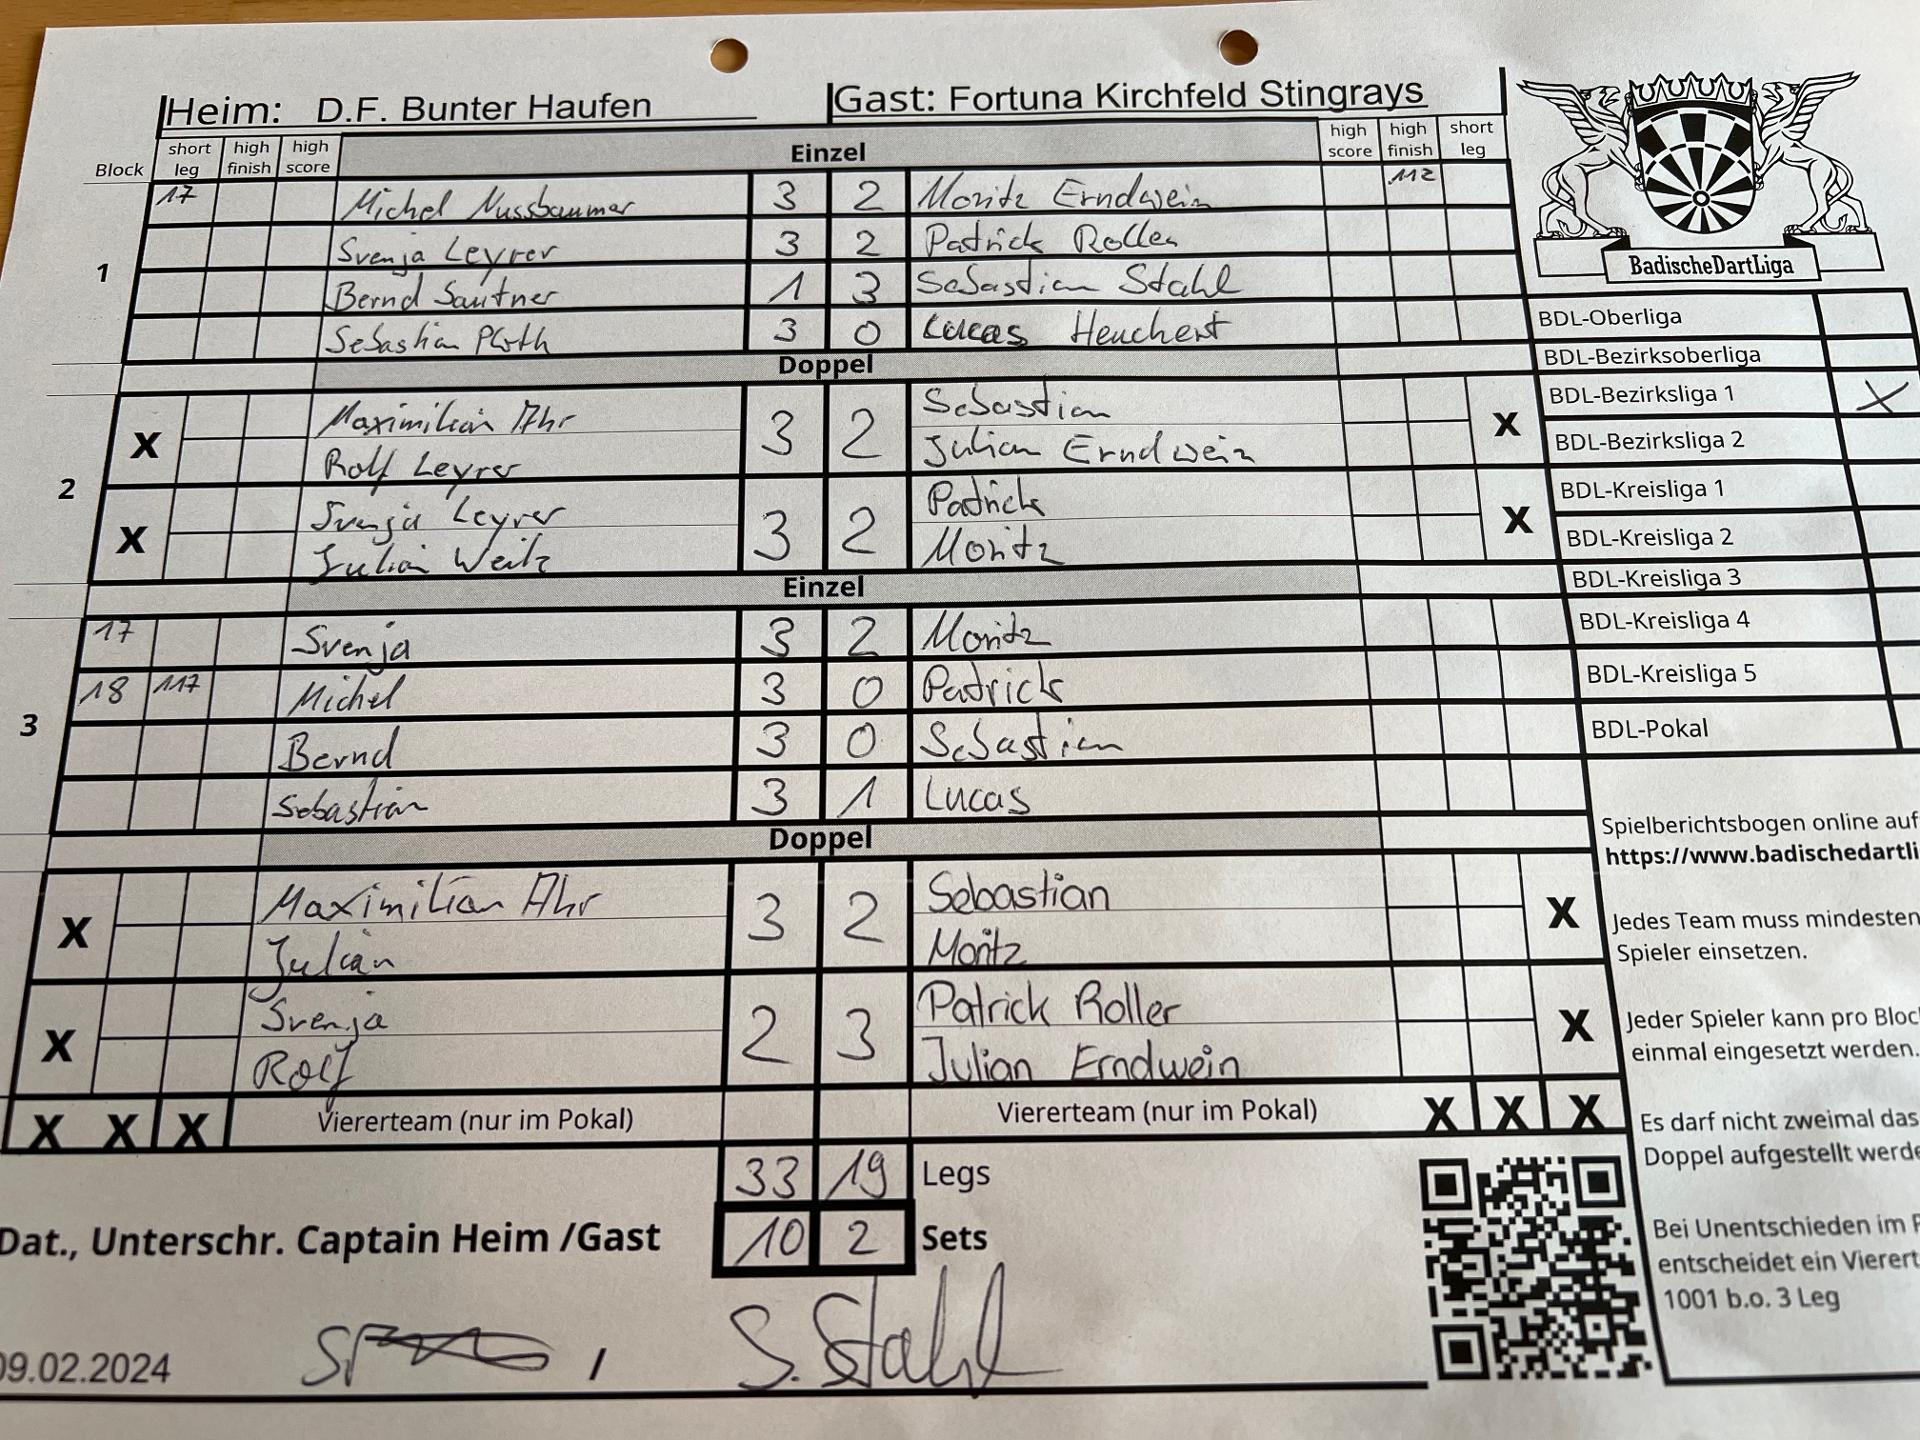 Heim: D.F. Bunter Haufen Gast: Fortuna Kirchfeld Stingrays
Block short leg high finish high score Einzel high score high finish short leg
17 Michel Nussbaumer 3 2 Moritz Erndwein 112
1 Svenja Leyrer 3 2 Patrick Roller
Bernd Sautner 1 3 Sebastian Stahl
Sebastian 3 0 Lucas Heuchert
Doppel
2
X Maximilian Ahr 3 2 Sebastian X
Rolf Leyrer Julian Erndwein
X Svenja Leyrer 3 2 Patrick X
Julian Weitz Moritz
Einzel
3
17 Svenja 3 2 Moritz
18 117 Michel 3 0 Patrick
Bernd 3 0 Sebastian
Sebastian 3 1 Lucas
Doppel
X Maximilian Ahr 3 2 Sebastian X
Julian Moritz
X Svenja 2 3 Patrick Roller X
Rolf Julian Erndwein
X X X Viererteam (nur im Pokal) Viererteam (nur im Pokal) X X X
33 19 Legs
Dat., Unterschr. Captain Heim /Gast 10 2 Sets
09.02.2024 / S. Stahl
BadischeDartLiga
BDL-Oberliga
BDL-Bezirksoberliga
BDL-Bezirksliga 1 X
BDL-Bezirksliga 2
BDL-Kreisliga 1
BDL-Kreisliga 2
BDL-Kreisliga 3
BDL-Kreisliga 4
BDL-Kreisliga 5
BDL-Pokal
Spielberichtsbogen online auf
https://www.badischedartli
Jedes Team muss mindesten
Spieler einsetzen.
Jeder Spieler kann pro Bloc
einmal eingesetzt werden.
Es darf nicht zweimal das
Doppel aufgestellt werde
Bei Unentschieden im P
entscheidet ein Vierert
1001 b.o. 3 Leg